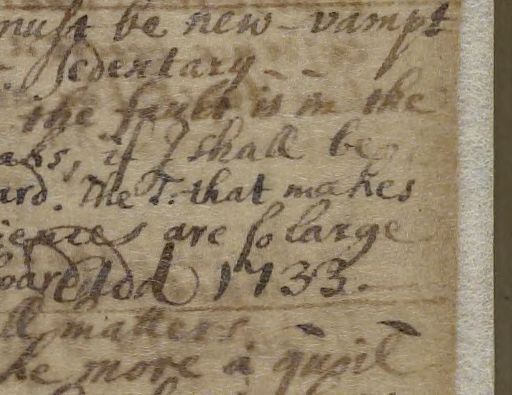 must be new-vampt
sedentary - -
the fault is in the
if I shall be
ard. The T. that makes
iences are so large
1733.
ll matters.
he more a qupil